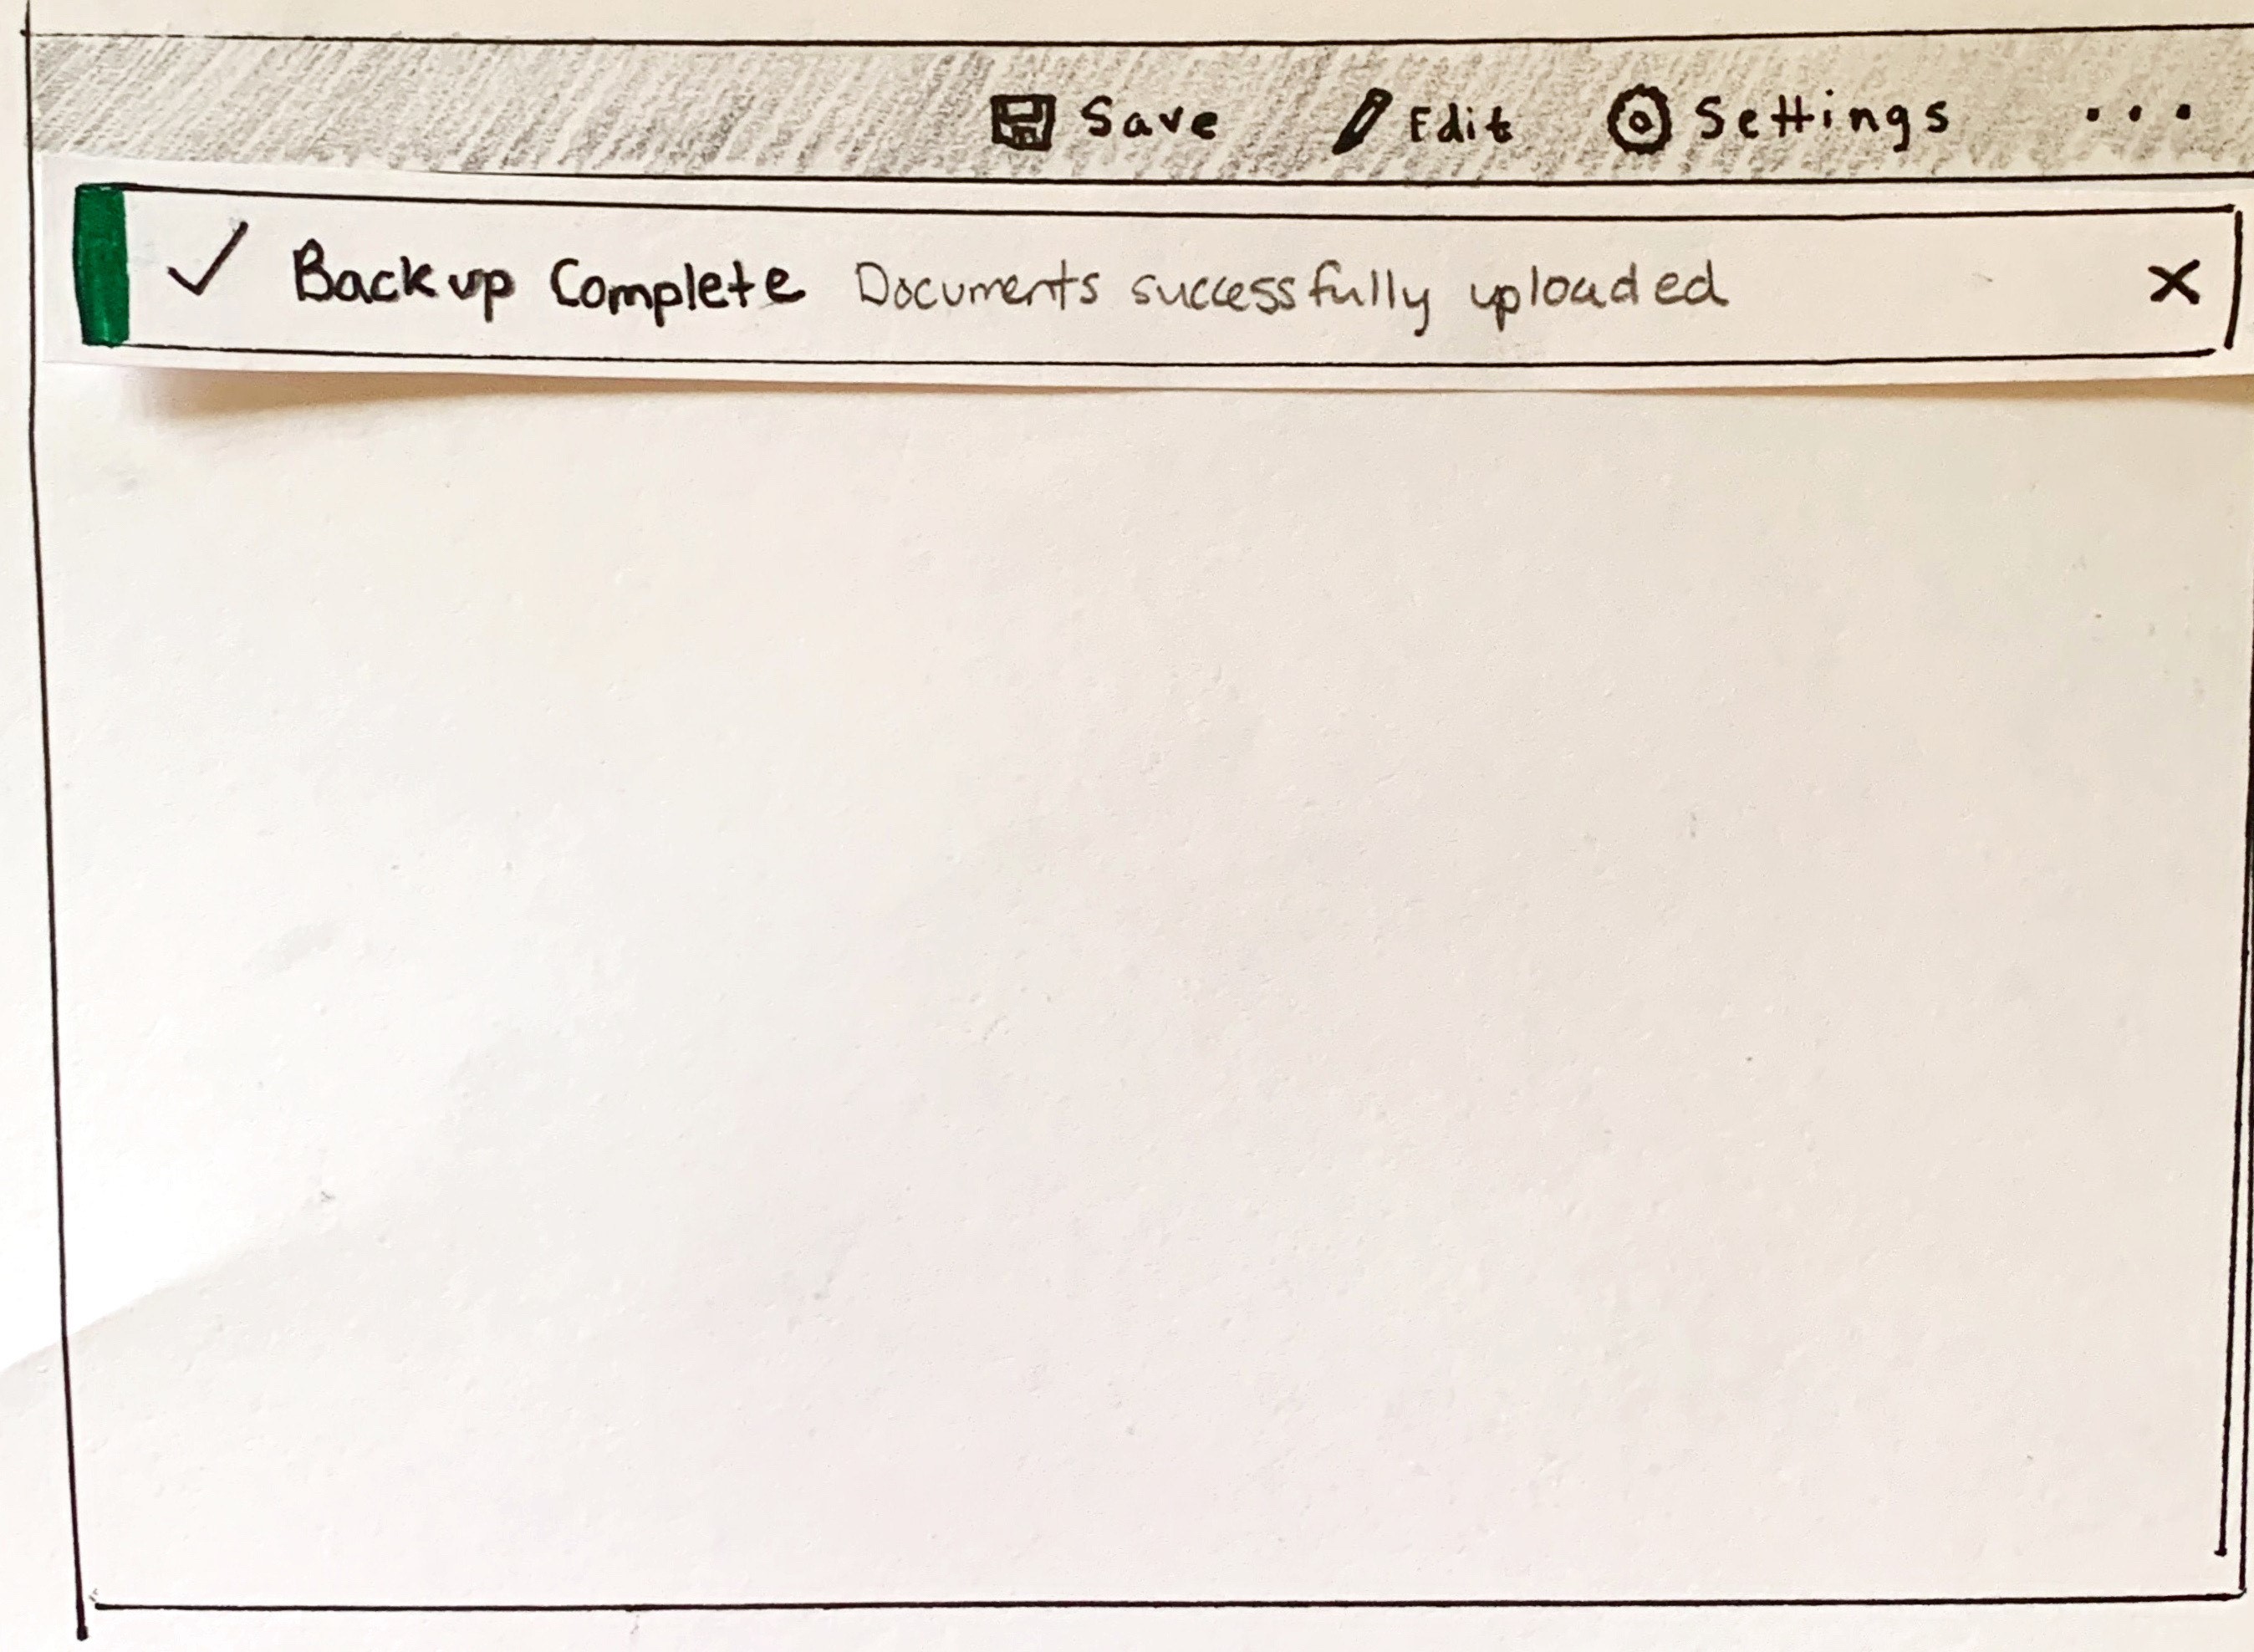 Save Edit Settings ...
Backup Complete Documents successfully uploaded X